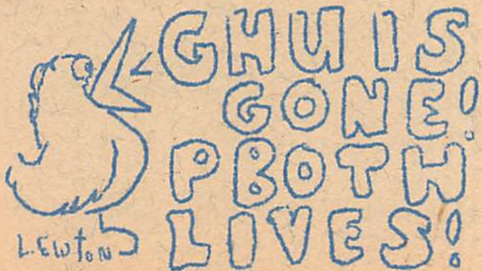 GHU IS
GONE!
PBOTH
LIVES!
LEWTON